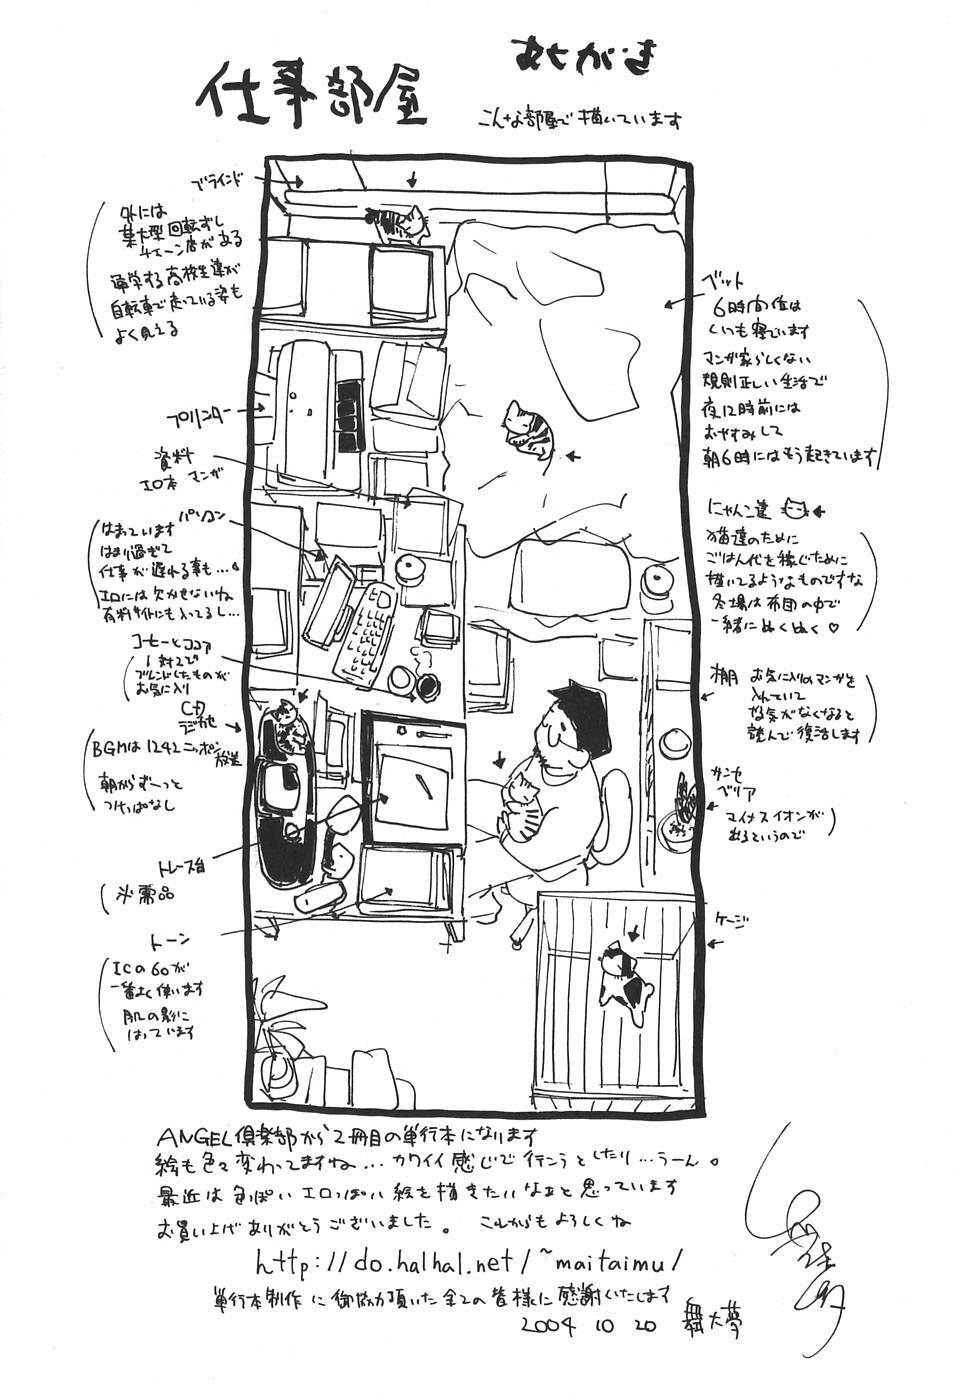 あとがき
仕事部屋
こんな部屋で描いています
ブラインド
外には
某大型回転ずし
チェーン店がある
通学する高校生達が
自転車で走っている姿も
よく見える
プリンター
資料
エロ本 マンガ
パソコン
はまっています
はまり過ぎて
仕事が遅れる事も…
エロには欠かせないね
有料サイトにも入ってるし…
コーヒーとココア
1対2で
ブレンドしたものが
お気に入り
CD
ラジカセ
BGMは1242ニッポン
放送
朝からず〜っと
つけっぱなし
トレース台
必需品
トーン
ICの60が
一番よく使います
肌の影に
はっています
ベット
6時間位は
いつも寝ています
マンガ家らしくない
規則正しい生活で
夜12時前には
おやすみして
朝6時にはもう起きています
にゃんこ達
猫達のために
ごはん代を稼ぐために
描いてるようなものですな
冬場は布団の中で
一緒にぬくぬく♡
棚 お気に入りのマンガを
入れていて
やる気がなくなると
読んで復活します
サンセ
ベリア
マイナスイオンが
出るというので
ケージ
ANGEL倶楽部から2冊目の単行本になります
絵も色々変わってますね…カワイイ感じで行こうとしたり…うーん。
最近は色っぽいエロっぽい絵を描きたいなぁと思っています
お買い上げありがとうございました。 これからもよろしくね
http://do.halhal.net/~maitaimu/
単行本制作に御協力頂いた全ての皆様に感謝いたします
2004 10 20 舞大夢